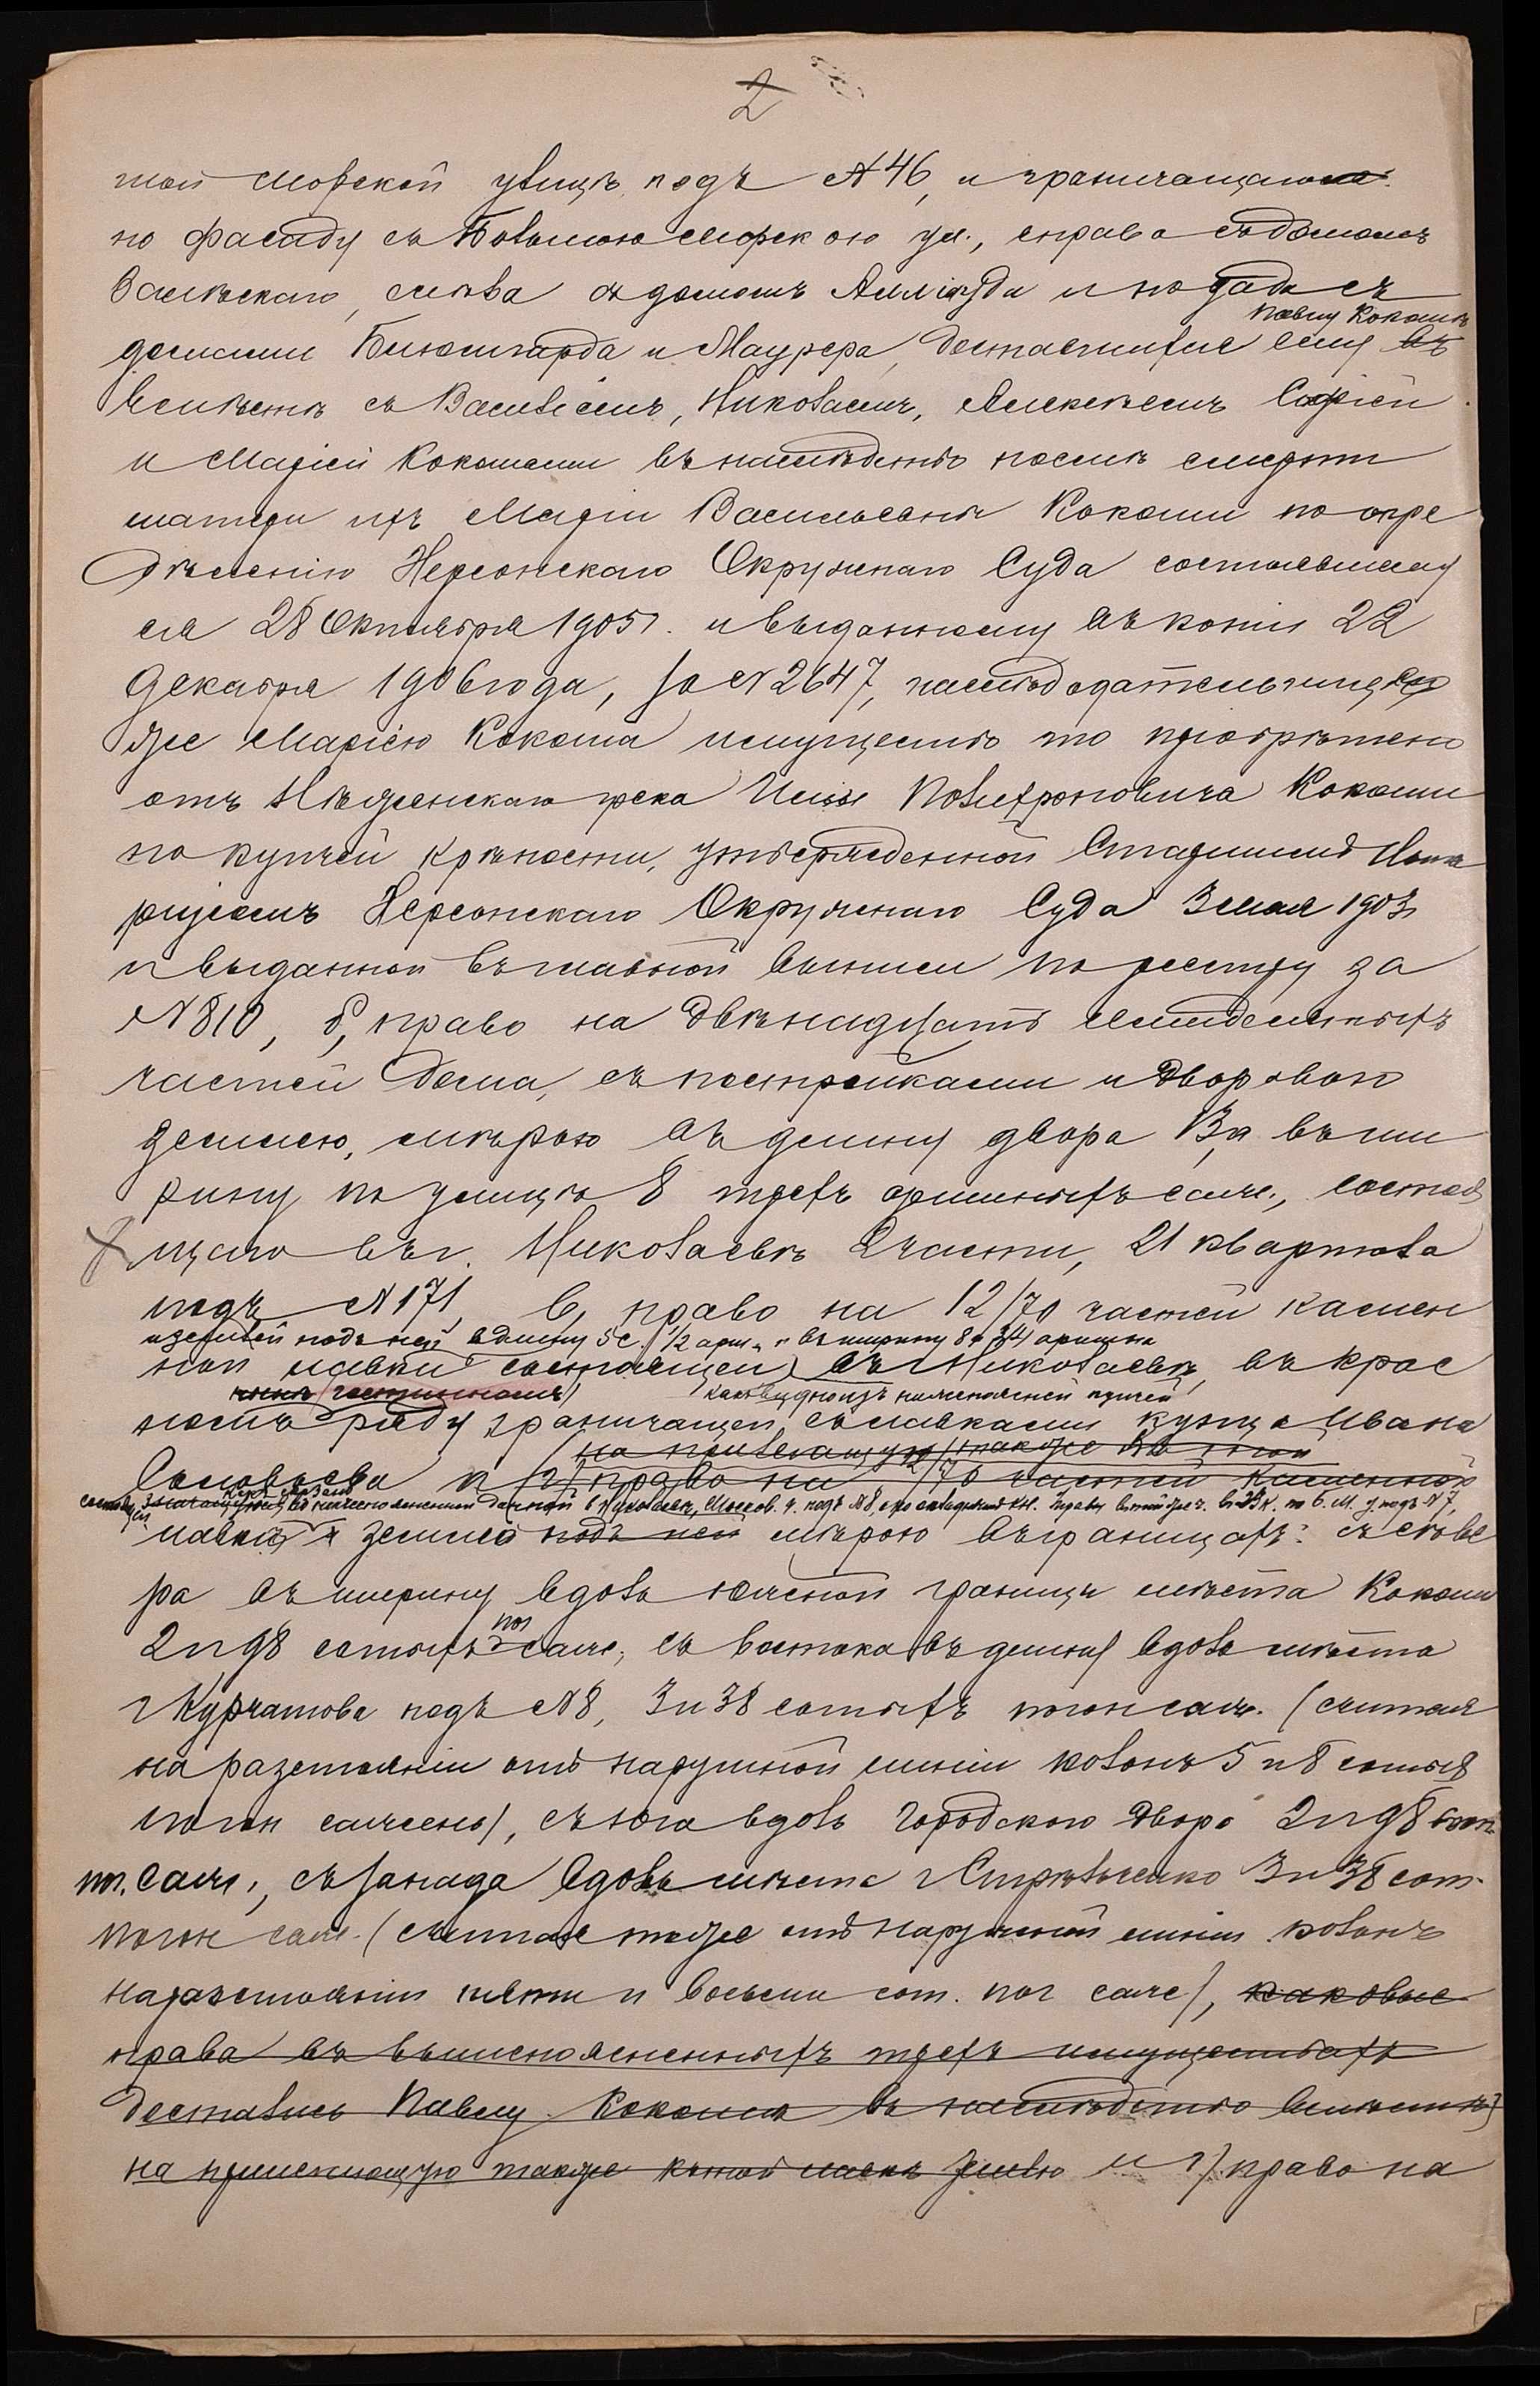 2
шой Морской улицѣ подъ №46, и граничащаго
по фасаду съ Большою Морскою ул., справа съ домомъ
слѣва съ домомъ и позади съ
Павлу Кокошѣ
домами и Маурера, доставшiяся ему въ
вмѣстѣ съ Василiемъ, Николаемъ, Алексѣемъ Софiей
и Марiей Кокошами въ наслѣдство послѣ смерти
матери ихъ Марiи Васильевны Кокоши по опре
дѣленiю Херсонскаго Окружнаго Суда состоявшему
ся 28 Октября 1905 г. и выданному въ копiи 22
Декабря 1906 года, за №2647, наслѣдодательницею
же Марiею Кокоша имущество то прiобрѣтено
отъ Нѣжинскаго грека Ильи Политроновича Кокоши
по купчей крѣпости, утвержденной Старшимъ Нота
рiусомъ Херсонскаго Окружнаго Суда 3 мая 1903
и выданной въ главной выписи по реестру за
№810, б, право на двѣнадцать семидесятыхъ
частей дома, съ постройками и дворовою
землею, мѣрою въ длину двора 13, въ ши
рину по улицѣ 8 трехъ аршинныхъ саж., состоя
щаго въ г. Николаевѣ 2 части, 21 квартала
подъ №171, в, право на 12/70 частей камен
и землей подъ ней въ длину 5 с. 1/2 арш. и въ ширину 8 3/4 аршина
ной лавки состоящей въ Николаевѣ, въ крас
какъ видно изъ нижепоясненной купчей
номъ ряду граничащей, съ лавками купца Ивана
на прилегающую также къ этой
Соловьева и 2/ право на 12/70 частей каменной
въ нижепоясненной данной въ Николаевѣ, Москов. ч. подъ №8, по б. М. у. подъ №7,
лавки и землею подъ ней мѣрою въ границахъ: съ сѣве
ра въ ширину вдоль южной границы мѣста Кокоши
пог
2 и 98 сотыхъ саж., съ востока въ длину вдоль мѣста
г Курчатова подъ №8, 3 и 38 сотыхъ погон саж. (считая
на разстоянiи отъ наружной линiи колонъ 5 и 8 сотыхъ
погон сажень), съ юга вдоль городского двора 2 и 98 сот.
пог. саж., съ запада вдоль мѣста г Стрѣльченко 3 и 38 сот.
погон саж. (считая также отъ наружной линiи колонъ
на разстоянiи пяти и восьми сот. пог саж), каковые
права въ вышепоясненныхъ трехъ имуществахъ
достались Павлу Кокоша въ наслѣдство вмѣстѣ
на прилегающую также къ этой лавкѣ землю и г) право на